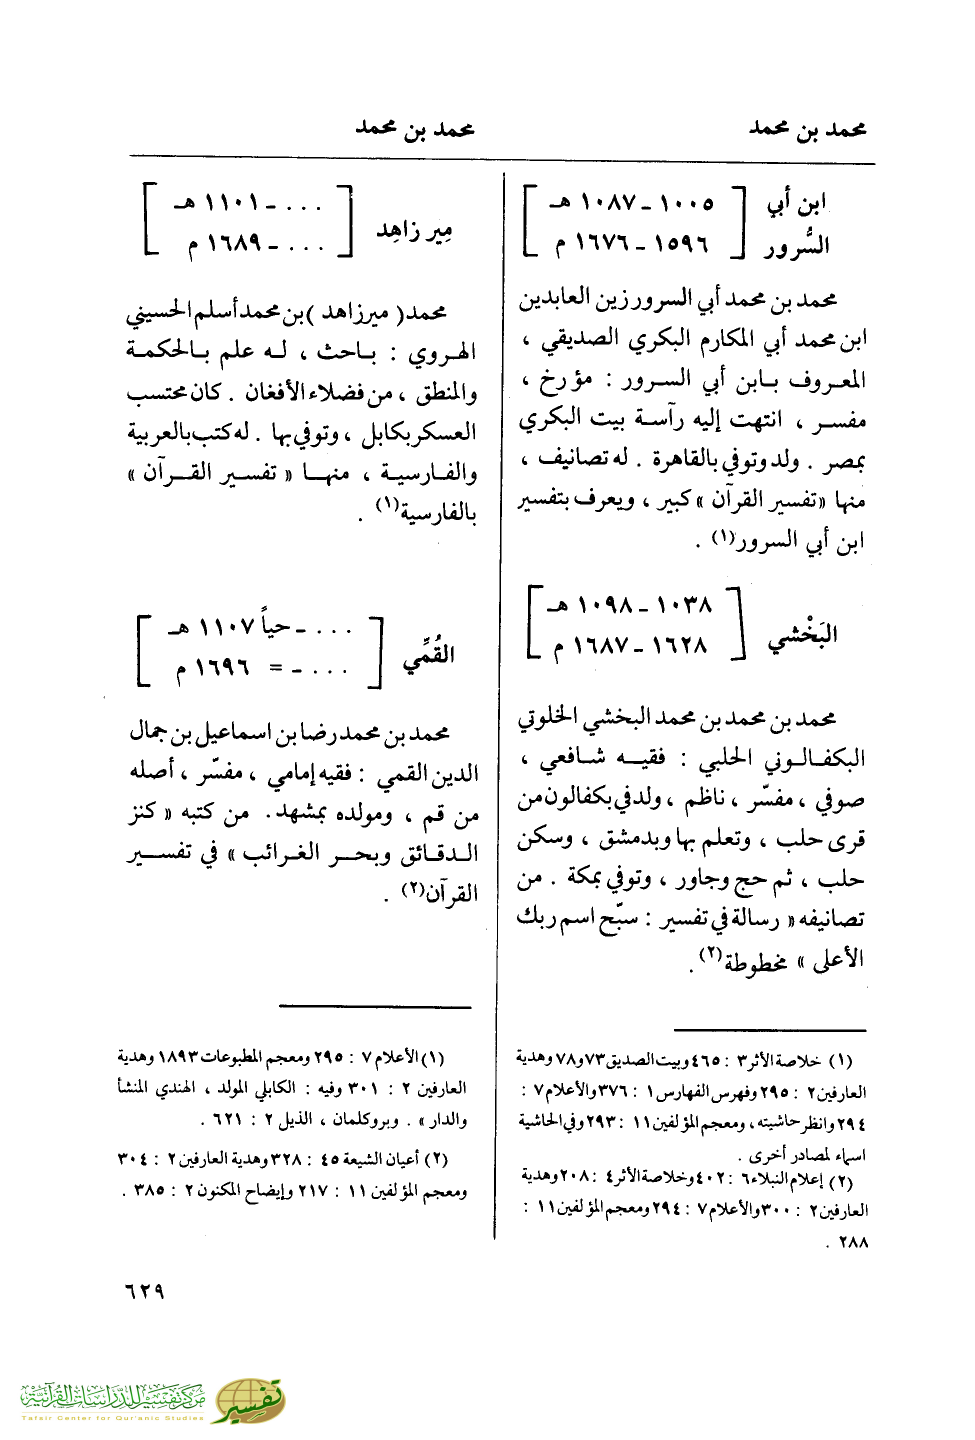 محمد بن محمد
محمد بن محمد
ابن أبي
السُّرور
[ ١٠٠٥ - ١٠٨٧ هـ
١٥٩٦ - ١٦٧٦ م ]
محمد بن محمد أبي السرور زين العابدين
ابن محمد أبي المكارم البكري الصديقي ،
المعروف بابن أبي السرور : مؤرخ ،
مفسر ، انتهت إليه رآسة بيت البكري
بمصر . ولد وتوفي بالقاهرة . له تصانيف ،
منها « تفسير القرآن » كبير ، ويعرف بتفسير
ابن أبي السرور(١) .
البَخْشي
[ ١٠٣٨ - ١٠٩٨ هـ
١٦٢٨ - ١٦٨٧ م ]
محمد بن محمد بن محمد البخشي الخلوتي
البكفالوني الحلبي : فقيه شافعي ،
صوفي ، مفسّر ، ناظم ، ولد في بكفالون من
قرى حلب ، وتعلم بها وبدمشق ، وسكن
حلب ، ثم حج وجاور ، وتوفي بمكة . من
تصانيفه « رسالة في تفسير : سبّح اسم ربك
الأعلى » مخطوطة(٢) .
(١) خلاصة الأثر ٣ : ٤٦٥ وبيت الصديق ٧٣ و ٧٨ وهدية
العارفين ٢ : ٢٩٥ وفهرس الفهارس ١ : ٣٧٦ والأعلام ٧ :
٢٩٤ وانظر حاشيته ، ومعجم المؤلفين ١١ : ٢٩٣ وفي الحاشية
اسماء لمصادر أخرى .
(٢) إعلام النبلاء ٦ : ٤٠٢ وخلاصة الأثر ٤ : ٢٠٨ وهدية
العارفين ٢ : ٣٠٠ والأعلام ٧ : ٢٩٤ ومعجم المؤلفين ١١ :
٢٨٨ .
مِير زاهِد
[ . . . - ١١٠١ هـ
. . . - ١٦٨٩ م ]
محمد ( ميرزاهد ) بن محمد أسلم الحسيني
الهروي : باحث ، له علم بالحكمة
والمنطق ، من فضلاء الأفغان . كان محتسب
العسكر بكابل ، وتوفي بها . له كتب بالعربية
والفارسية ، منها « تفسير القرآن »
بالفارسية(١) .
القُمِّي
[ . . . - حياً ١١٠٧ هـ
. . . - = ١٦٩٦ م ]
محمد بن محمد رضا بن اسماعيل بن جمال
الدين القمي : فقيه إمامي ، مفسّر ، أصله
من قم ، ومولده بمشهد . من كتبه « كنز
الدقائق وبحر الغرائب » في تفسير
القرآن(٢) .
(١) الأعلام ٧ : ٢٩٥ ومعجم المطبوعات ١٨٩٣ وهدية
العارفين ٢ : ٣٠١ وفيه : الكابلي المولد ، الهندي المنشأ
والدار » . وبروكلمان ، الذيل ٢ : ٦٢١ .
(٢) أعيان الشيعة ٤٥ : ٣٢٨ وهدية العارفين ٢ : ٣٠٤
ومعجم المؤلفين ١١ : ٢١٧ وإيضاح المكنون ٢ : ٣٨٥ .
٦٢٩
مركز تفسير للدراسات القرآنية
Tafsir Center for Qur'anic Studies
تفسير